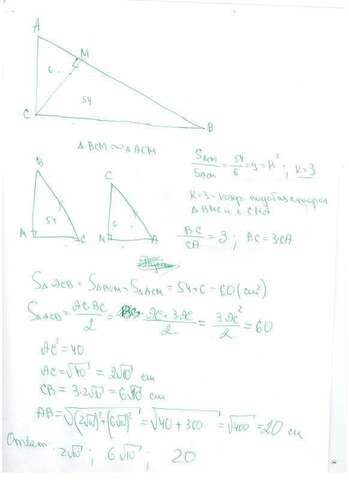 A
M
6
54
C
B
△BCM ∞ △ACM
S_BCM/S_ACM = 54/6 = 9 = K²; K=3
B
54
M
C
C
6
M
A
K=3 – коэф. подобия
△BMC и CMA
BC/CA = 3; BC=3·CA
S△ACB = S△BCM + S△ACM = 54+6 = 60 (см²)
S△ACB = AC·BC/2 = x·3x/2 = 3x²/2 = 60
x² = 40
AC = √40 = 2√10 см
CB = 3·2√10 = 6√10 см
AB = √(2√10)²+(6√10)² = √40+360 = √400 = 20 см
Ответ: 2√10; 6√10; 20